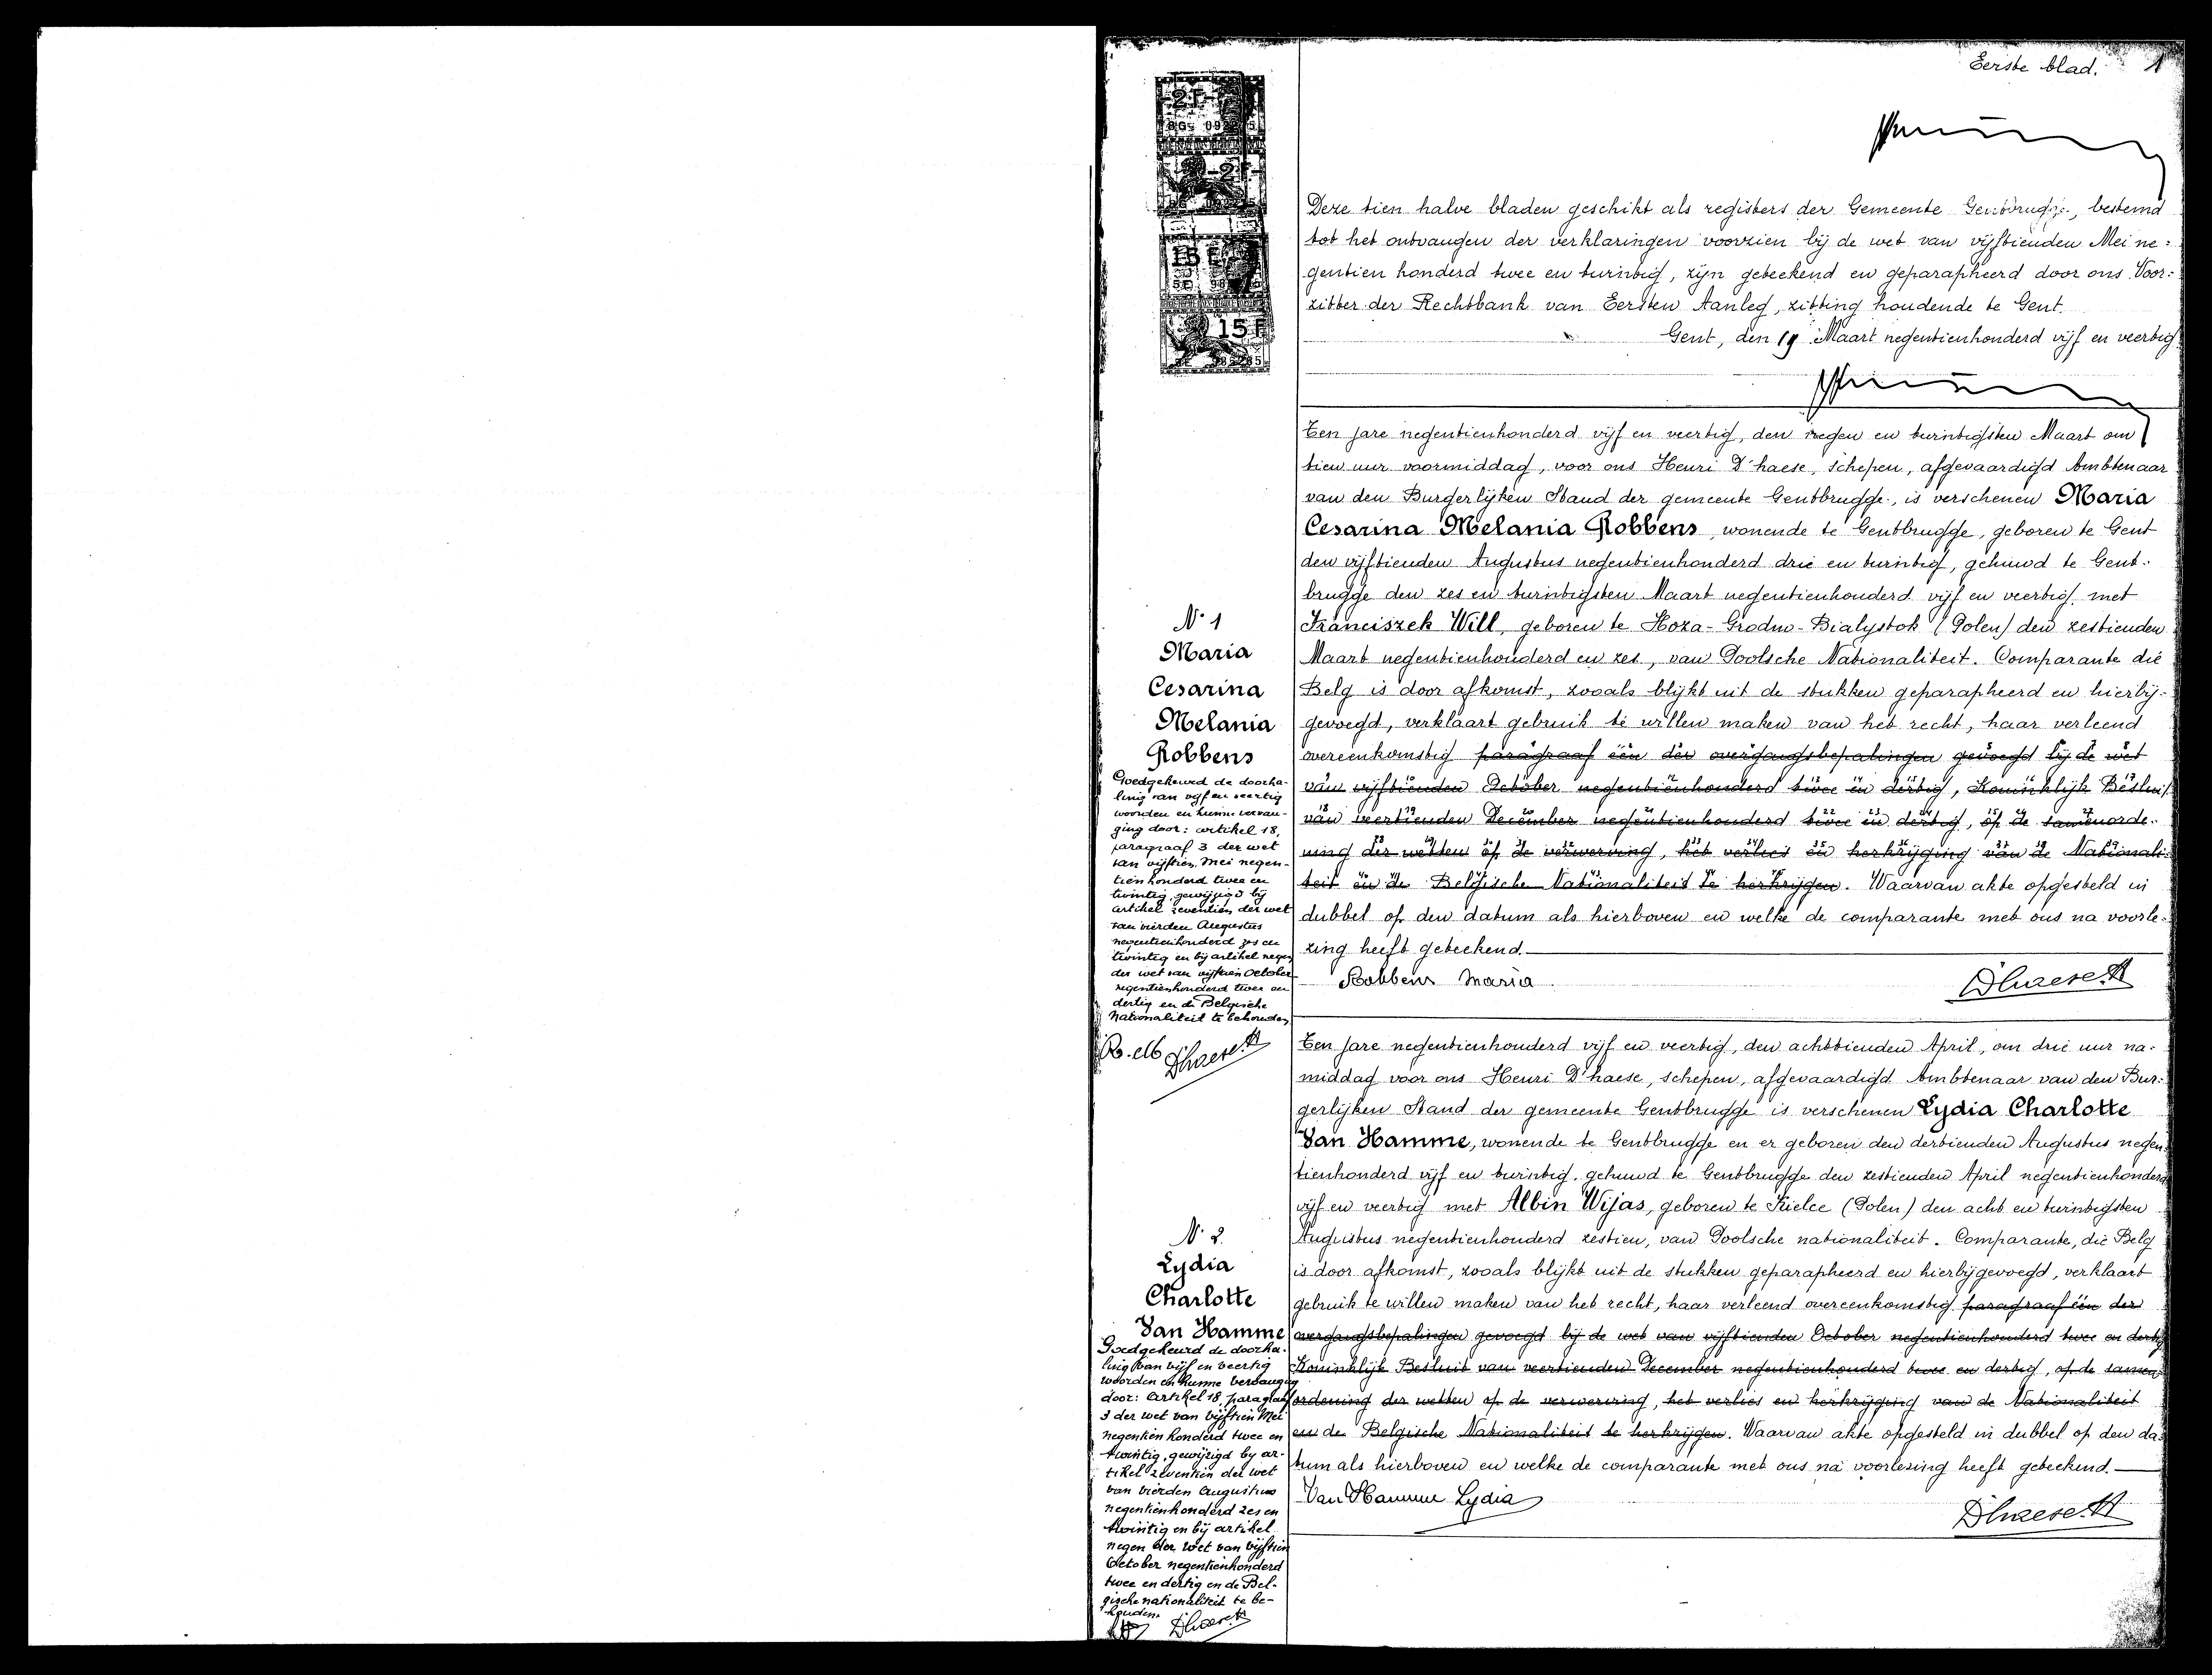 Eerste blad. 1
Deze tien halve bladen geschikt als registers der Gemeente Gentbrugge, bestemd
tot het ontvangen der verklaringen voorzien bij de wet van vijftienden Mei ne=
gentien honderd twee en twintig, zijn geteekend en geparapheerd door ons Voor=
zitter der Rechtbank van Eersten Aanleg, zitting houdende te Gent.
Gent, den 19 Maart negentienhonderd vijf en veertig
Ten jare negentienhonderd vijf en veertig, den negen en twintigsten Maart om
tien uur voormiddag, voor ons Henri D'haese, schepen, afgevaardigd Ambtenaar
van den Burgerlijken Stand der gemeente Gentbrugge, is verschenen Maria
Cesarina Melania Robbens, wonende te Gentbrugge, geboren te Gent
den vijftienden Augustus negentienhonderd drie en twintig, gehuwd te Gent=
brugge den zes en twintigsten Maart negentienhonderd vijf en veertig met
Franciszek Will, geboren te Hoza-Grodno-Bialystok (Polen) den zestienden
Maart negentienhonderd en zes, van Poolsche Nationaliteit. Comparante die
Belg is door afkomst, zooals blijkt uit de stukken geparapheerd en hierbij=
gevoegd, verklaart gebruik te willen maken van het recht, haar verleend
overeenkomstig paragraaf één der overgangsbepalingen gevoegd bij de wet
van vijftienden October negentienhonderd twee en dertig, Koninklijk Besluit
van veertienden December negentienhonderd twee en dertig, op de samenorde=
ning der wetten op de verwerving, het verlies en herkrijging van de Nationali=
teit en de Belgische Nationaliteit te herkrijgen. Waarvan akte opgesteld in
dubbel op den datum als hierboven en welke de comparante met ons na voorle=
zing heeft geteekend.
Robbens Maria
D'haese H
N. 1
Maria
Cesarina
Melania
Robbens
Goedgekeurd de doorha-
ling van vijf en veertig
woorden en hunne vervan-
ging door: artikel 18,
paragraaf 3 der wet
van vijftien Mei negen-
tien honderd twee en
twintig, gewijzigd bij
artikel zeventien der wet
van vierden Augustus
negentienhonderd zes en
twintig en bij artikel negen
der wet van vijftien October
negentienhonderd twee en
dertig en de Belgische
Nationaliteit te behouden
R. M D'haese H
Ten jare negentienhonderd vijf en veertig, den achttienden April, om drie uur na=
middag voor ons Henri D'haese, schepen, afgevaardigd Ambtenaar van den Bur=
gerlijken Stand der gemeente Gentbrugge is verschenen Lydia Charlotte
Van Hamme, wonende te Gentbrugge en er geboren den dertienden Augustus negen=
tienhonderd vijf en twintig, gehuwd te Gentbrugge den zestienden April negentienhonderd
vijf en veertig met Albin Wijas, geboren te Kielce (Polen) den acht en twintigsten
Augustus negentienhonderd zestien, van Poolsche nationaliteit. Comparante, die Belg
is door afkomst, zooals blijkt uit de stukken geparapheerd en hierbijgevoegd, verklaart
gebruik te willen maken van het recht, haar verleend overeenkomstig paragraaf één der
overgangsbepalingen gevoegd bij de wet van vijftienden October negentienhonderd twee en dertig
Koninklijk Besluit van veertienden December negentienhonderd twee en dertig, op de samen=
ordening der wetten op de verwerving, het verlies en herkrijging van de Nationaliteit
en de Belgische Nationaliteit te herkrijgen. Waarvan akte opgesteld in dubbel op den da=
tum als hierboven en welke de comparante met ons na voorlezing heeft geteekend.
Van Hamme Lydia
D'haese H
N. 2.
Lydia
Charlotte
Van Hamme
Goedgekeurd de doorha-
ling van vijf en veertig
woorden en hunne vervanging
door: Artikel 18 paragraaf
3 der wet van vijftien Mei
negentien honderd twee en
twintig, gewijzigd by ar-
tikel zeventien der wet
van vierden Augustus
negentienhonderd zes en
twintig en bij artikel
negen der wet van vijftien
October negentienhonderd
twee en dertig en de Bel-
gische nationaliteit te be-
houden.
D'haese H